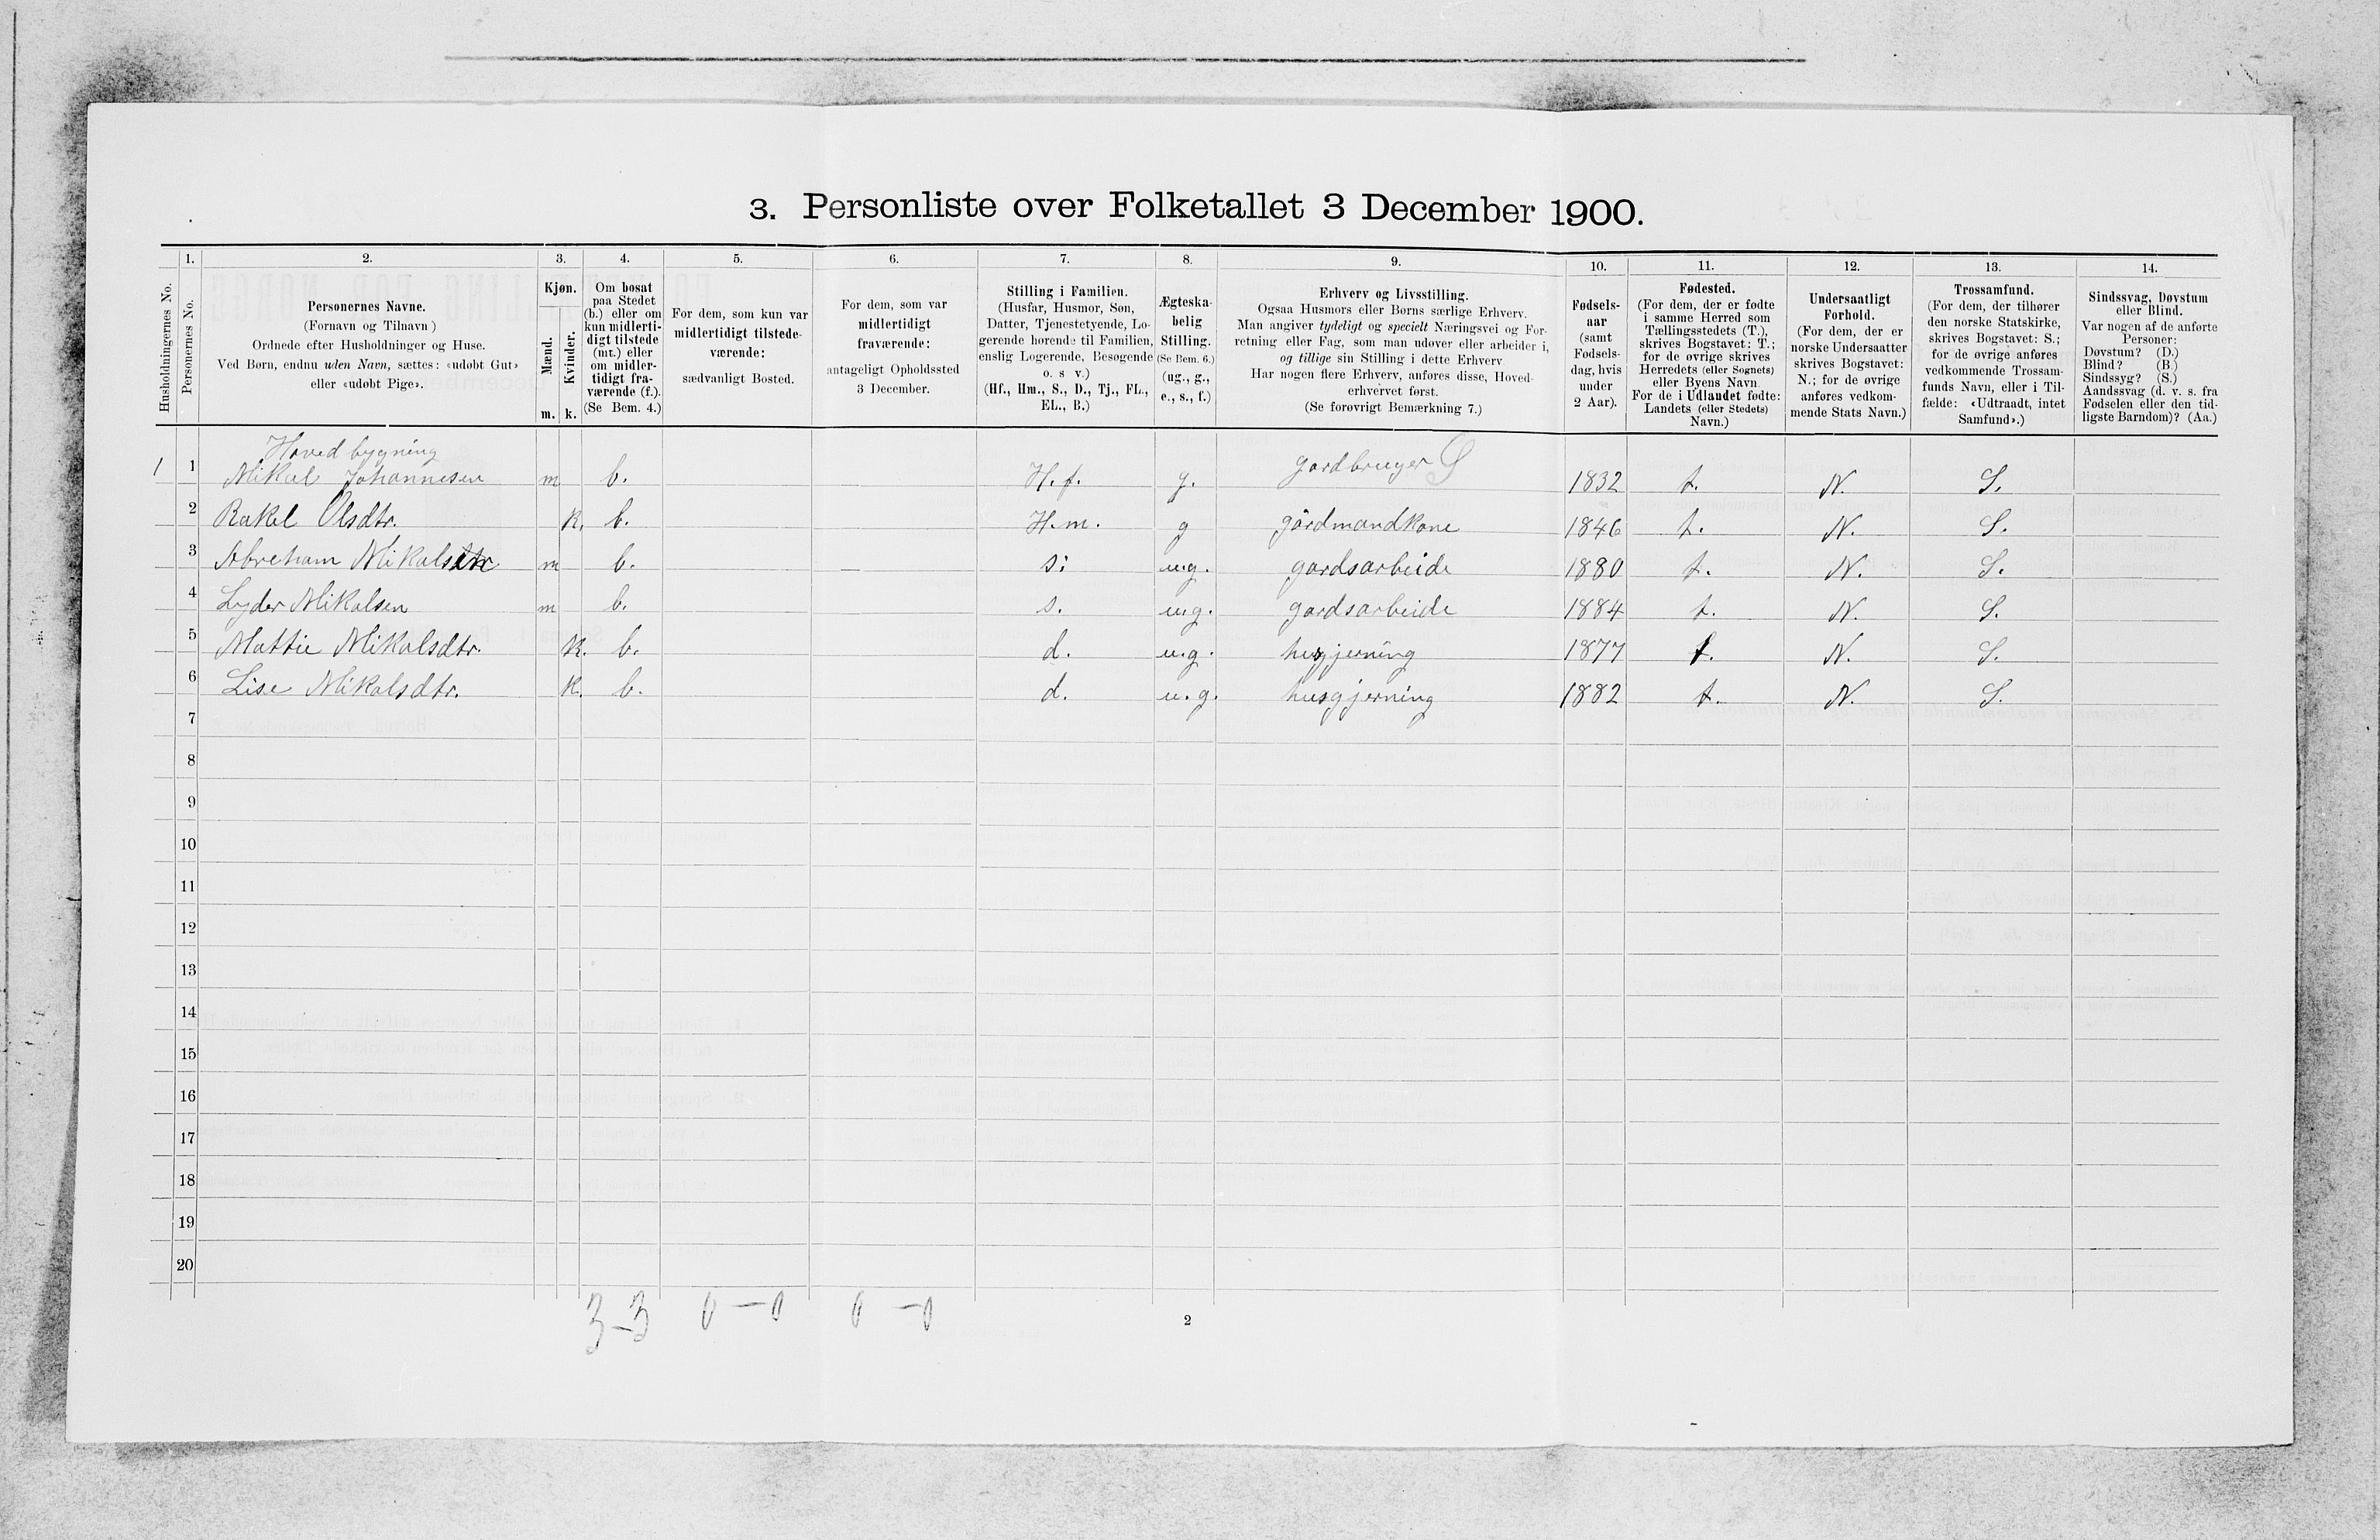 3. Personliste over Folketallet 3 December 1900.
Husholdningernes No.
1.
Personernes No.
2.
Personernes Navne.
(Fornavn og Tilnavn)
Ordnede efter Husholdninger og Huse.
Ved Børn, endnu uden Navn, sættes: «udøbt Gut»
eller «udøbt Pige».
3.
Kjøn.
Mænd.
Kvinder.
m. k.
4.
Om bosat
paa Stedet
(b.) eller om
kun midlerti-
digt tilstede
(mt.) eller
om midler-
tidigt fra-
værende (f.).
(Se Bem. 4.)
5.
For dem, som kun var
midlertidigt tilstede-
værende:
sædvanligt Bosted.
6.
For dem, som var
midlertidigt
fraværende:
antageligt Opholdssted
3 December.
7.
Stilling i Familien.
(Husfar, Husmor, Søn,
Datter, Tjenestetyende, Lo-
gerende hørende til Familien,
enslig Logerende, Besøgende
o. s v.)
(Hf., Hm., S., D., Tj., FL.,
EL., B.)
8.
Ægteska-
belig
Stilling.
(Se Bem. 6.)
(ug., g.,
e., s., f.)
9.
Erhverv og Livsstilling.
Ogsaa Husmors eller Børns særlige Erhverv.
Man angiver tydeligt og specielt Næringsvei og For-
retning eller Fag, som man udøver eller arbeider i,
og tillige sin Stilling i dette Erhverv
Har nogen flere Erhverv, anføres disse, Hoved-
erhvervet først.
(Se forøvrigt Bemærkning 7.)
10.
Fødsels-
aar
(samt
Fødsels-
dag, hvis
under
2 Aar).
11.
Fødested.
(For dem, der er fødte
i samme Herred som
Tællingsstedets (T.),
skrives Bogstavet: T.;
for de øvrige skrives
Herredets (eller Sognets)
eller Byens Navn
For de i Udlandet fødte:
Landets (eller Stedets)
Navn.)
12.
Undersaatligt
Forhold.
(For dem, der er
norske Undersaatter
skrives Bogstavet:
N.; for de øvrige
anføres vedkom-
mende Stats Navn.)
13.
Trossamfund.
(For dem, der tilhører
den norske Statskirke,
skrives Bogstavet: S.;
for de øvrige anføres
vedkommende Trossam-
funds Navn, eller i Til-
fælde: «Udtraadt, intet
Samfund».)
14.
Sindssvag, Døvstum
eller Blind.
Var nogen af de anførte
Personer:
Døvstum? (D.)
Blind? (B.)
Sindssyg? (S.)
Aandssvag (d. v. s. fra
Fødselen eller den tid-
ligste Barndom)? (Aa.)
Hoved bygning
1 1 Mikal Johannesen m b. H.f. g. gardbruger S 1832 t. N. S.
2 Rakel Olsdtr. k. b. H.m. g gårdmandkone 1846 t. N. S.
3 Abreham Mikalsen m b. s: u.g. gardsarbeide 1880 t. N. S.
4 Lyder Mikalsen m b. s. u.g. gardsarbeide 1884 t. N. S.
5 Mattie Mikalsdtr. k. b. d. u.g. husgjerning 1877 t. N. S.
6 Lise Mikalsdtr. k. b. d. u.g. husgjerning 1882 t. N. S.
7
8
9
10
11
12
13
14
15
16
17
18
19
20
3-3 0-0 0-0
2